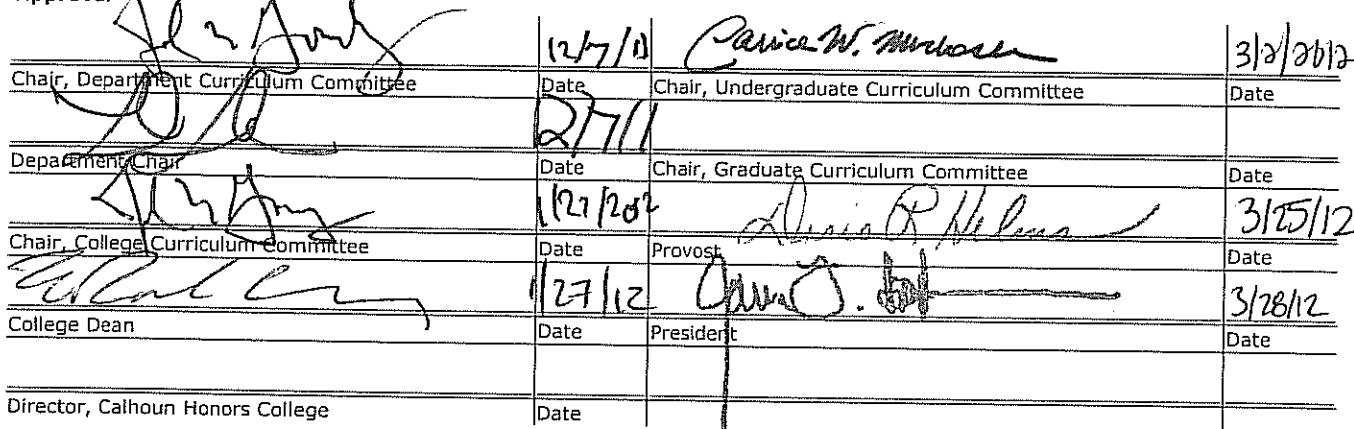 12/7/11 Janice W. Murdoch 3/2/2012
Chair, Department Curriculum Committee Date Chair, Undergraduate Curriculum Committee Date
2/7/11
Department Chair Date Chair, Graduate Curriculum Committee Date
1/27/2012 3/25/12
Chair, College Curriculum Committee Date Provost Date
1/27/12 3/28/12
College Dean Date President Date
Director, Calhoun Honors College Date